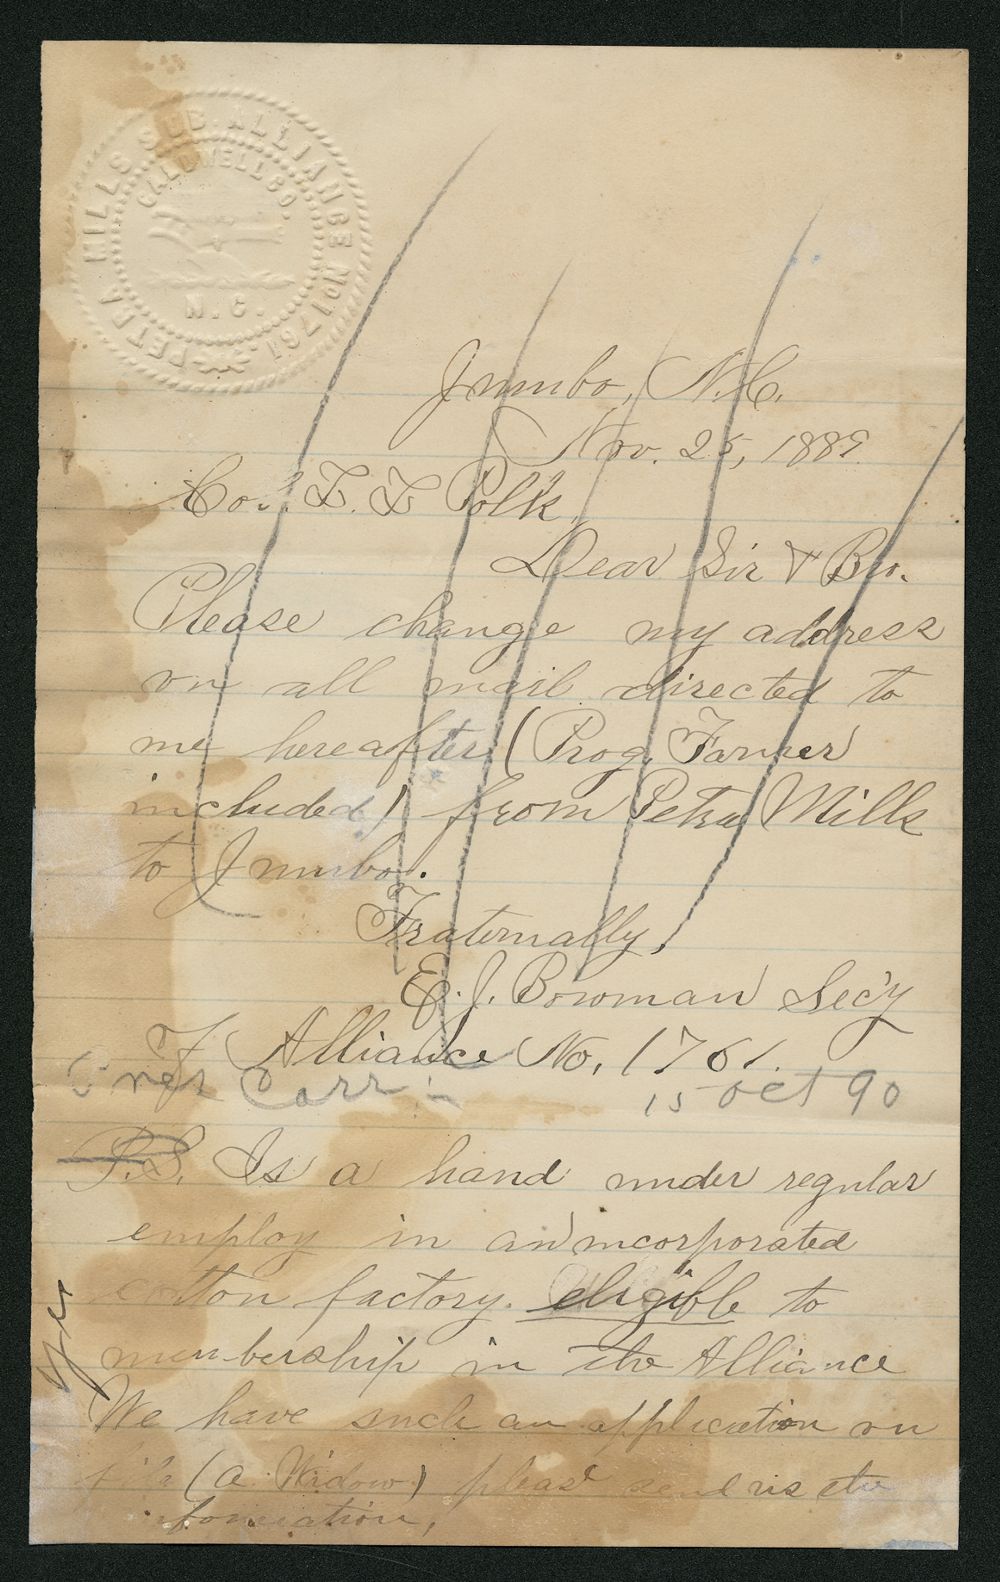 PETRA MILLS SUB. ALLIANCE No 1761.
CALDWELL CO.
N.C.
Jumbo, N.C.
Nov. 25, 1889
Col. L. L. Polk,
Dear Sir & Bro.
Please change my address
on all mail directed to
me hereafter (Prog. Farmer
included) from Petra Mills
to Jumbo.
Fraternally,
E. J. Bowman Sec'y
Alliance No. 1761.
Carr 15 Oct 90
P.S. Is a hand under regular
employ in an incorporated
cotton factory. eligible to
membership in the Alliance
yes
We have such an application on
file (a Widow) please send us the
information.